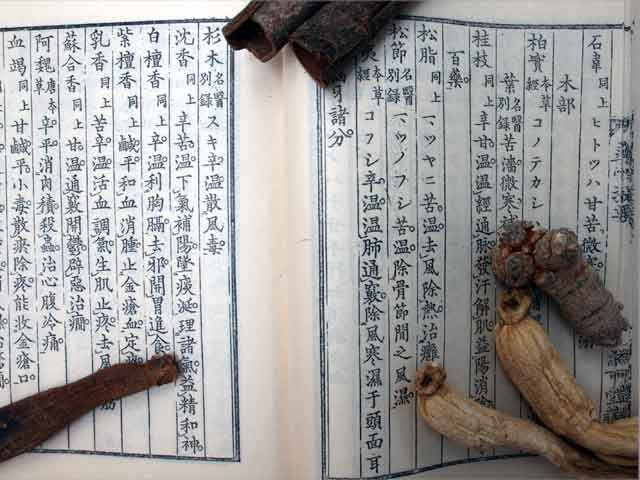 石韋 同上 ヒトツハ 甘苦微寒
木部
柏實 本草經 コノテカシ
葉 名醫別錄 苦濇微寒補
桂枝 同上 辛甘温温經通脉發汗解肌益陽消
百藥。
松脂 同上 マツヤニ 苦温去風除熱治癰
松節 名醫別錄 マツノフシ 苦温除骨節間之風濕
夷 本草經 コフシ 辛温温肺通竅除風寒濕于頭面耳
諸分。
杉木 名醫別錄 スキ 辛温散風毒
沈香 同上 辛苦温下氣補陽墜痰涎理諸氣益精和神。
白檀香 同上 辛温利胸膈去邪開胃進食
紫檀香 同上 鹹平和血消腫止金瘡血定
乳香 同上 苦辛温活血調氣生肌止疼去風
蘇合香 同上 甘温通竅開鬱辟惡治癇。
阿魏 唐本草 辛平消肉積殺蟲治心腹冷痛
血竭 同上 甘鹹平小毒散瘀除疼能收金瘡口